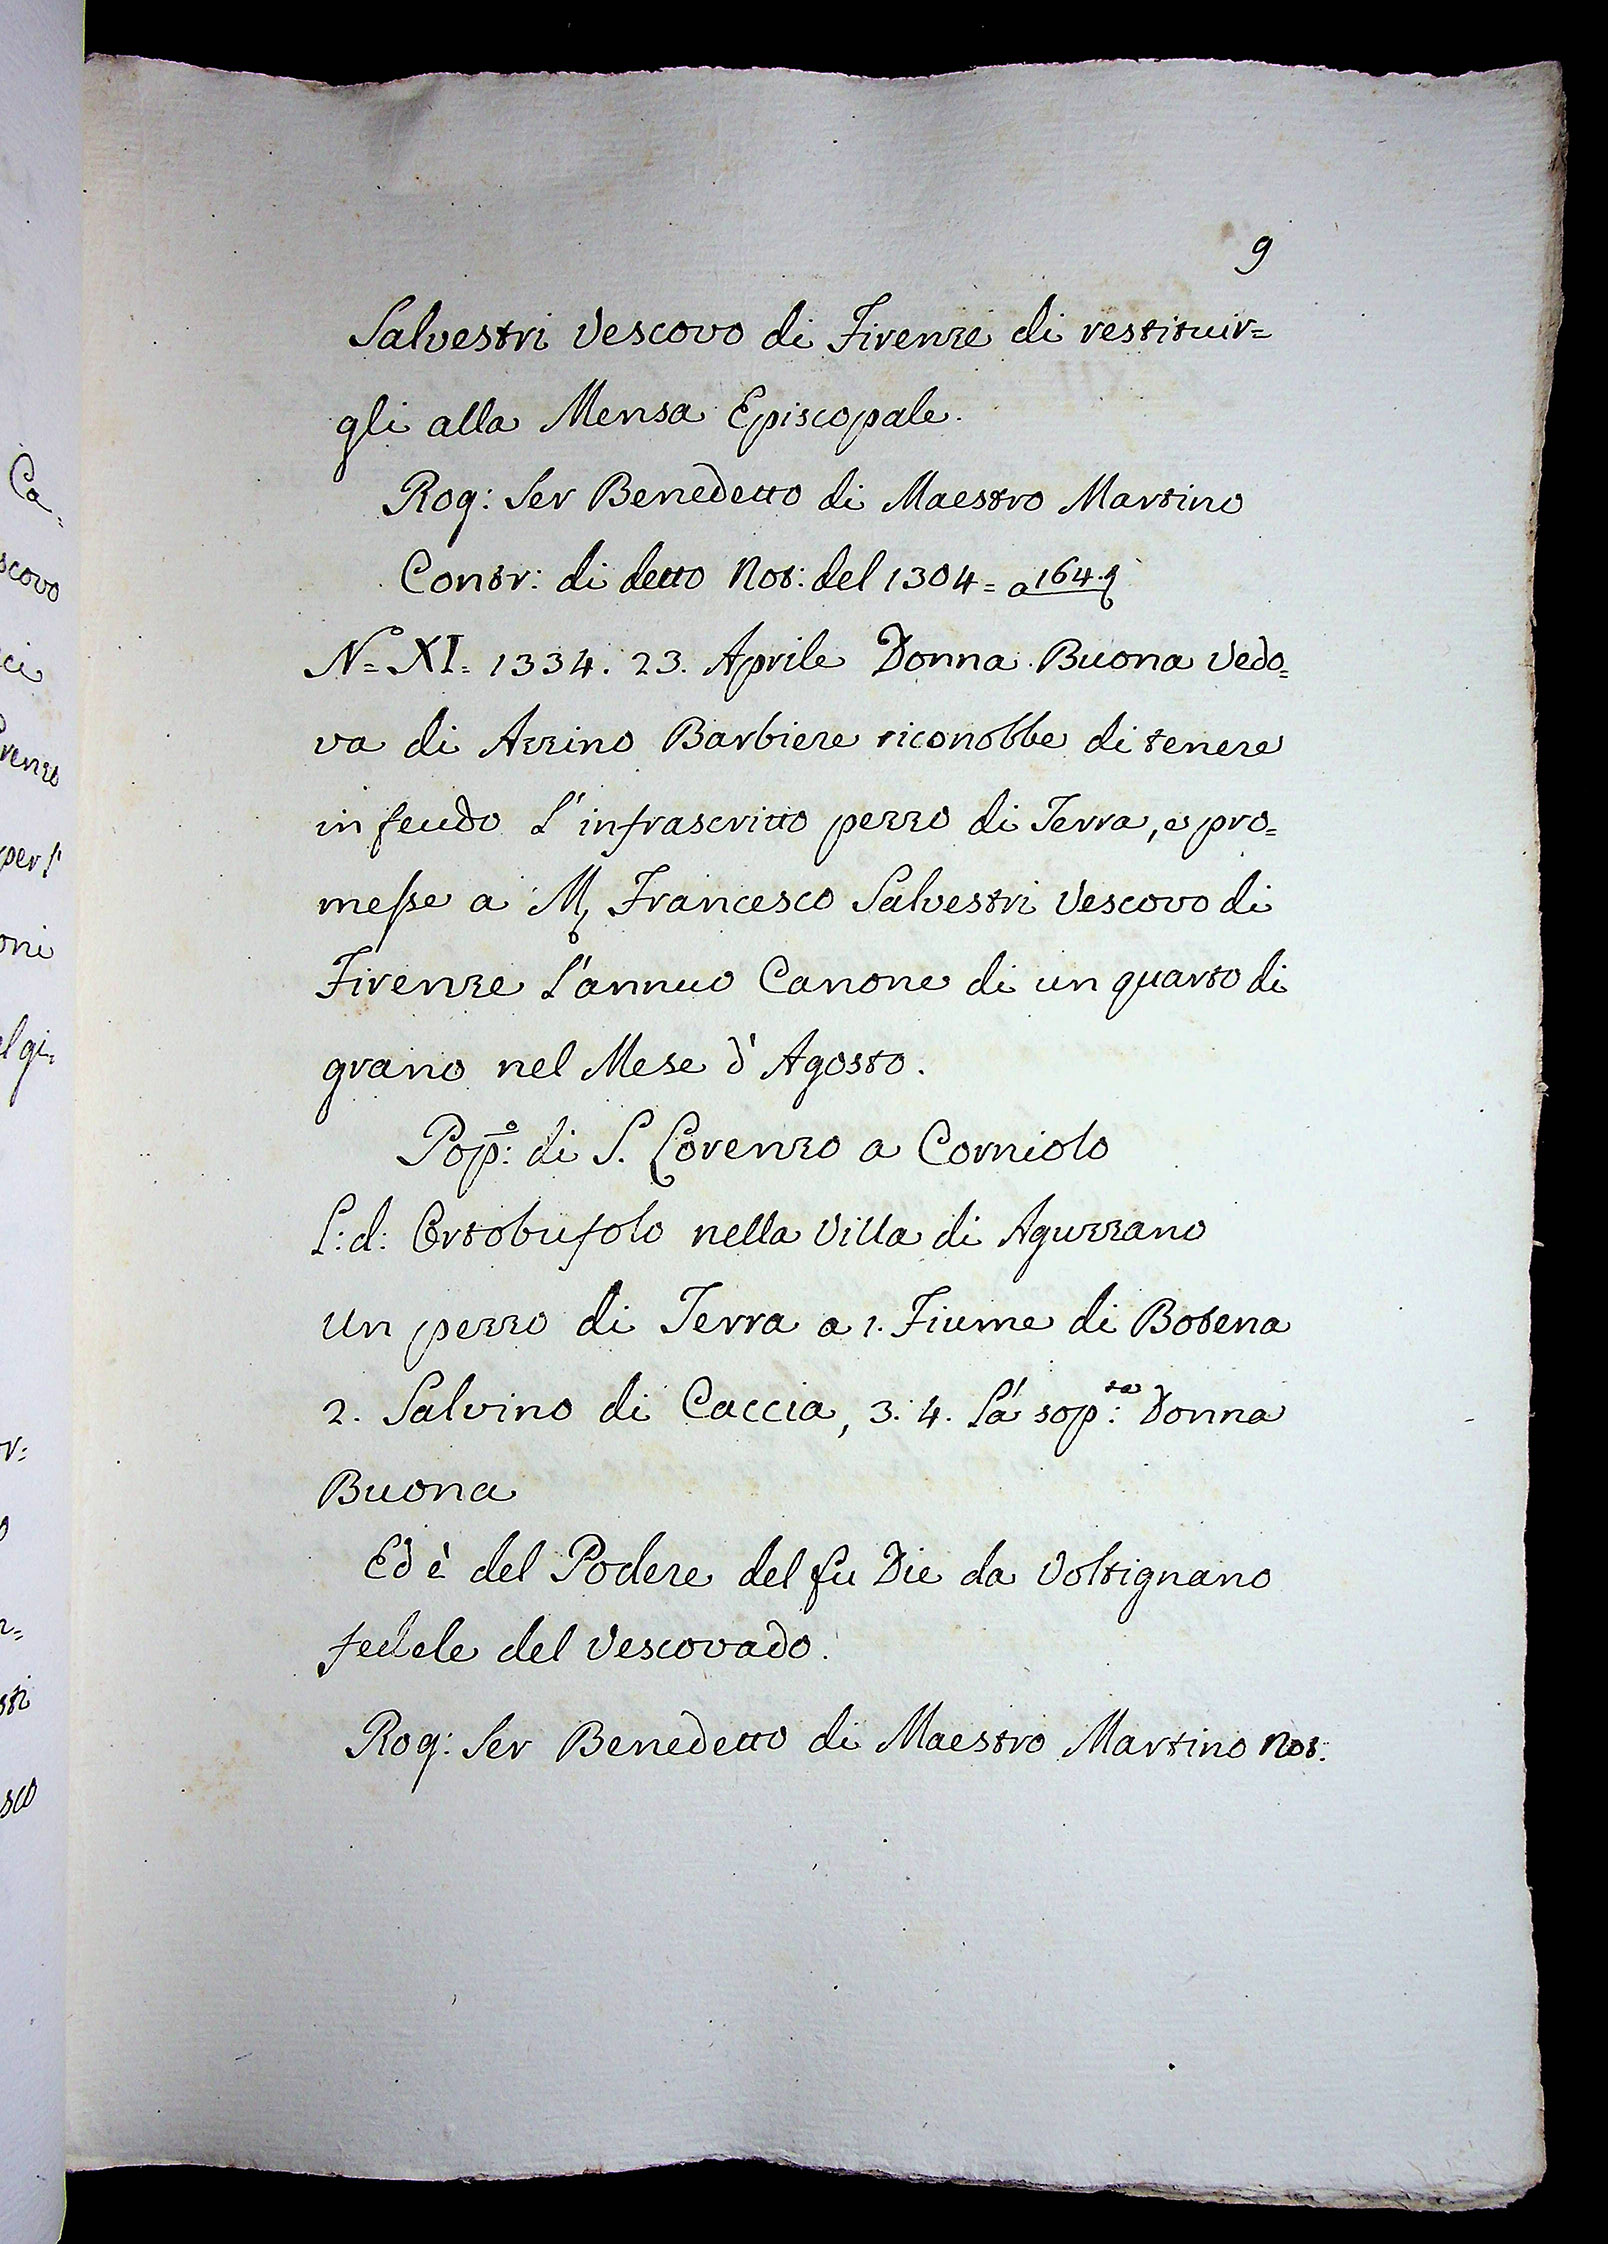 9
Salvestri Vescovo di Firenze di restituir=
gli alla Mensa Episcopale.
Rog: Ser Benedetto di Maestro Martino
Contr: di detto Not: del 1304= a 164.
Nº XI= 1334. 23. Aprile Donna Buona Vedo=
va di Azzino Barbiere riconobbe di tenere
in feudo L'infrascritto pezzo di Terra, e pro=
messe a M, Francesco Salvestri Vescovo di
Firenze L'annuo Canone di un quarto di
grano nel Mese d'Agosto.
Popº: di S. Lorenzo a Corniolo
L: d: Ortobufolo nella Villa di Aguzzano
Un pezzo di Terra a 1. Fiume di Botena
2. Salvino di Caccia, 3. 4. La sop:ta Donna
Buona
Ed è del Podere del fu Die da Voltignano
fedele del Vescovado.
Rog: Ser Benedetto di Maestro Martino Not.
Ca=
scovo
ci
renzo
per l'
oni
el gi=
r=
o
sti
sco